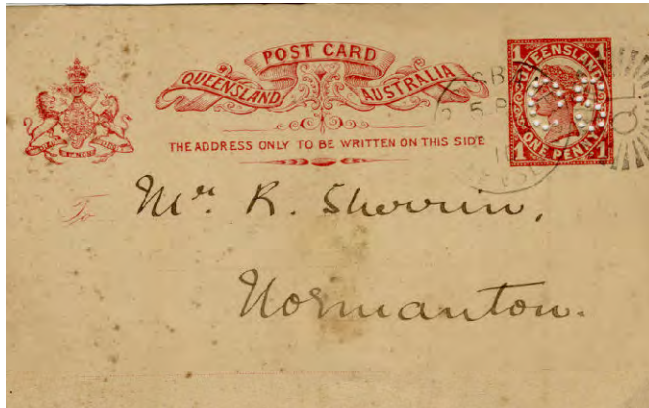 POST CARD
QUEENSLAND AUSTRALIA
THE ADDRESS ONLY TO BE WRITTEN ON THIS SIDE
1 QUEENSLAND 1
1 ONE PENNY 1
To Mr. R. Sherrin,
Normanton.